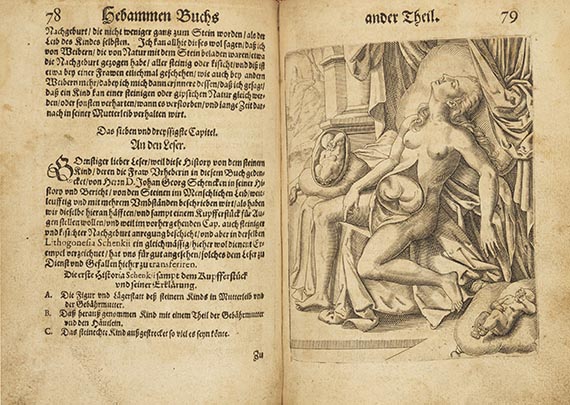 78 Hebammen Buchs
Nachgeburt/ die nicht weniger gantz zum Stein worden/ als der
Leib des Kindes selbsten. Ich kan allhie dieses wol sagen/ daß ich
von Weibern/ die von Natur mit dem Stein beladen waren/ etwa
die Nachgeburt gezogen habe/ aller steinig oder kisicht/ und diß ist
etwa bey einer Frawen etlichmal geschehen/ wie auch bey andern
Weibern mehr/ dabey ich mich dann erinnere dessen/ daß ich gesagt/
daß ein Kind kan einer steinigen oder gipsichen Natur gleich wer-
den/ oder sonsten verharten/ wann es verstorben/ und lange Zeit dar-
nach in seiner Mutterleib verhalten wirt.
Das sieben und dreyssigste Capitel.
An den Leser.
Günstiger lieber Leser/ weil diese History von dem steinen
Kind/ deren die Fraw Urheberin in diesem Buch geden-
cket/ von Herrn D. Johan Georg Schencken in seiner Hi-
story und Bericht/ von den Steinen im Menschlichen Leib/ wei-
leufftig und mit mehrem Umbständen beschrieben wirt/ als haben
wir dieselbe hieran hälfften/ und sampt einem Kupfferstück für Au-
gen stellen wollen/ und weil im vorhergehenden Cap. auch steiniger
und kisichter Nachgeburt anregung beschicht/ und aber in derselben
Lithogonesia Schenkii ein gleichmässig/ hieher wol dienent Ex-
empel verzeichnet/ hat uns für gut angesehen/ solches dem Leser zu
Dienst und Gefallen hieher zu transferiren.
Die erste Historia Schenkii sampt dem Kupfferstück
und seiner Erklärung.
A. Die Figur und Lägerstatt deß steinern Kinds in Mutterleib und
der Gebährmutter.
B. Daß herauß genommen Kind mit einem Theil der Gebährmutter
und den Häutlein.
C. Das steinechte Kind außgestrecket so viel es seyn könte.
Zu
ander Theil. 79